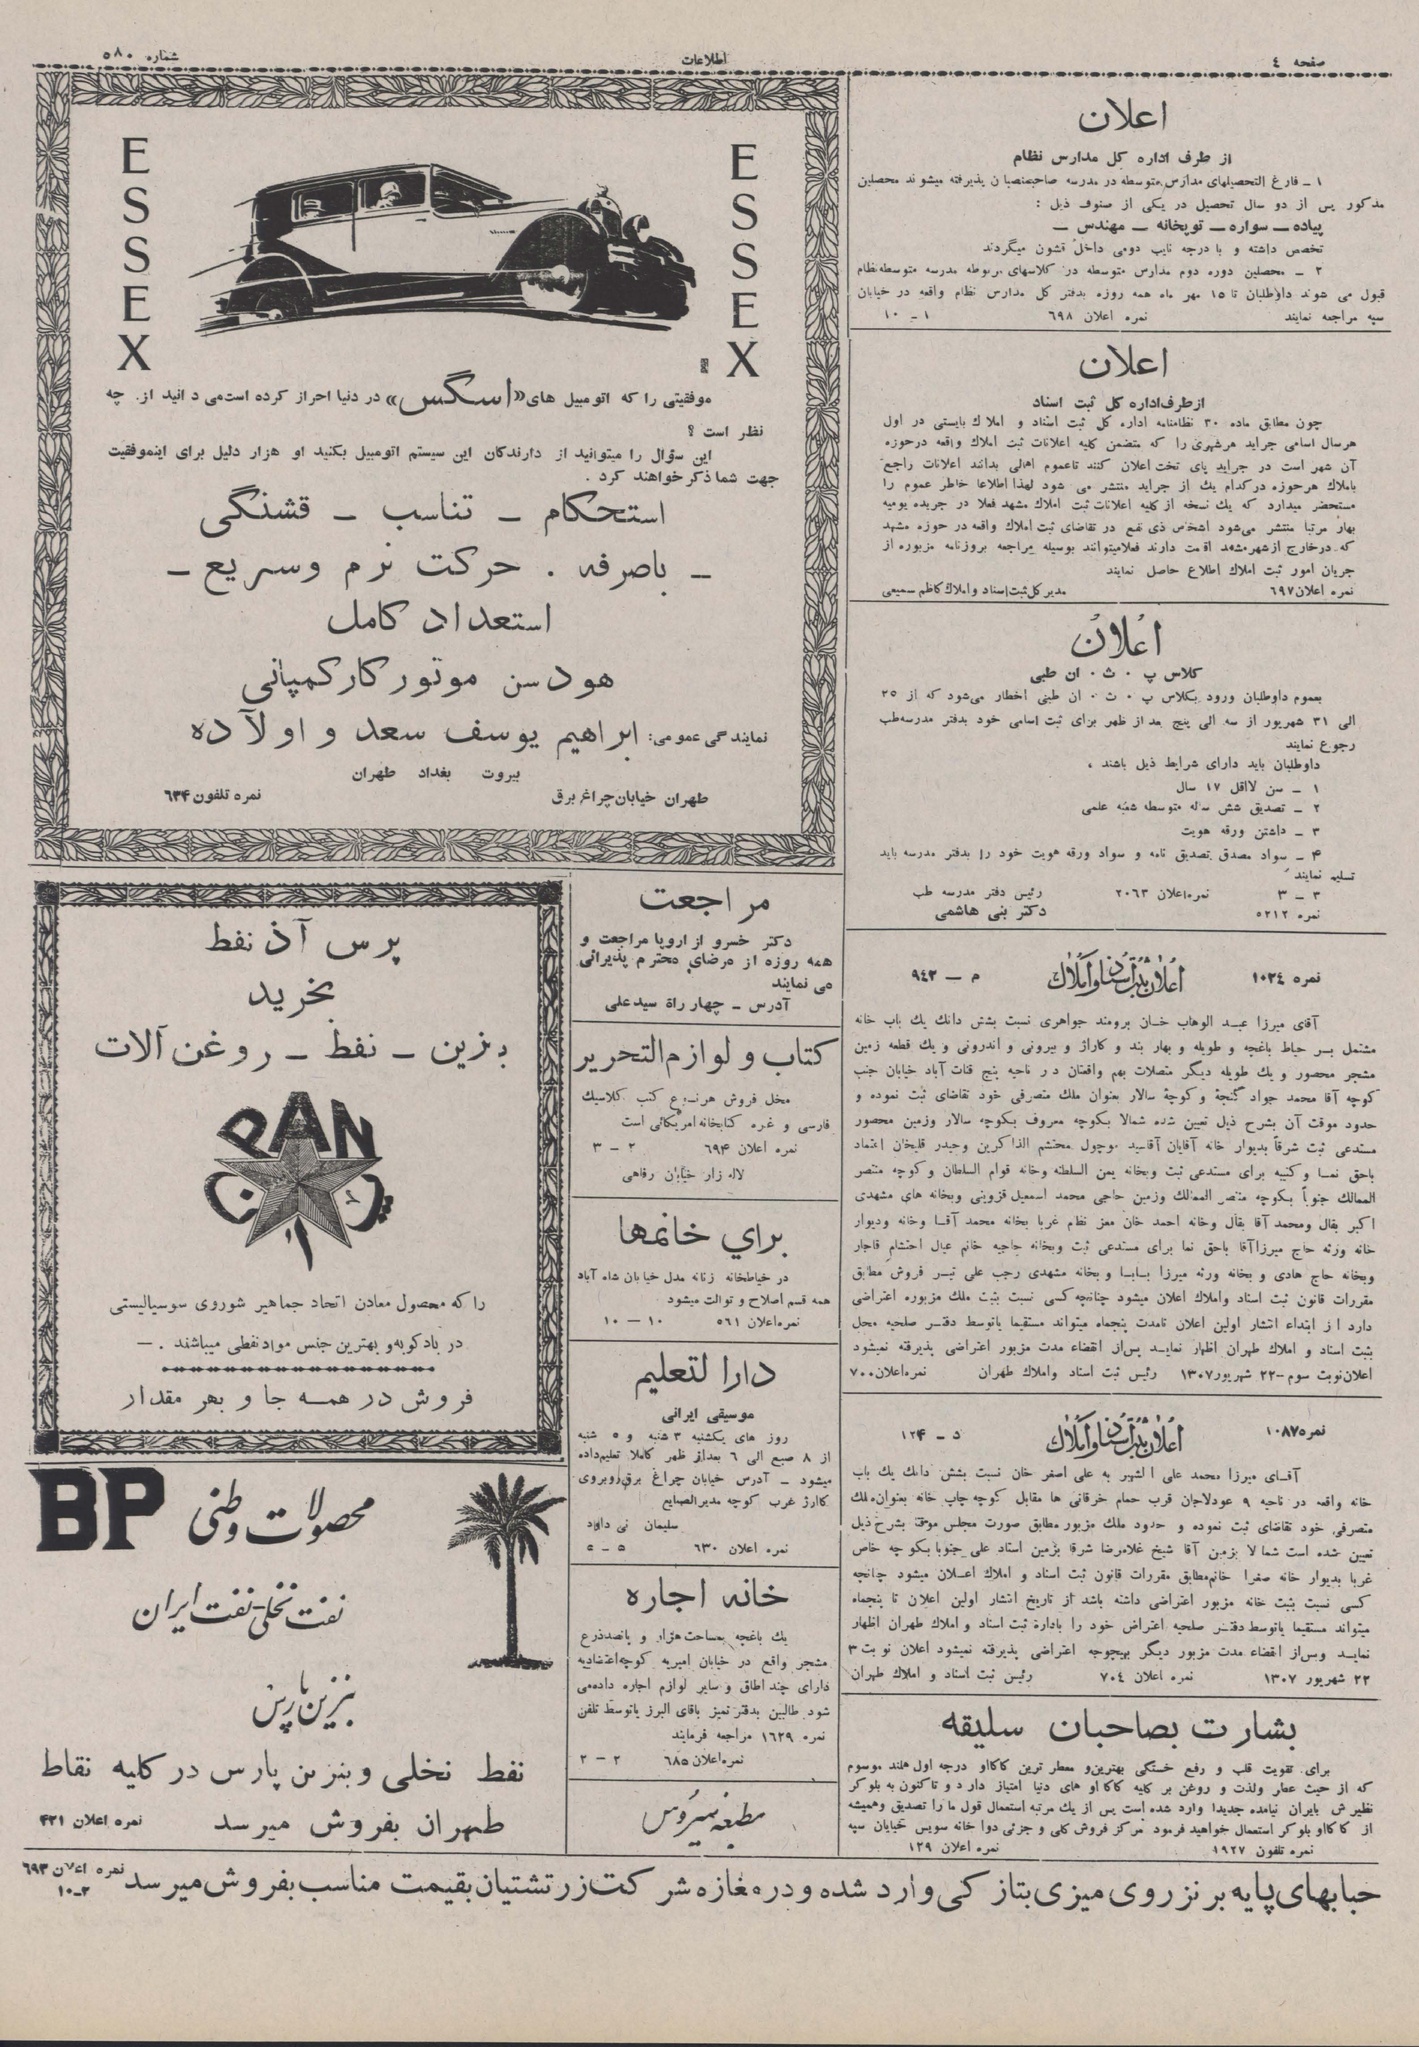 صفحه ٤
اطلاعات
شماره ٥٨٠
اعلان
از طرف اداره كل مدارس نظام
١ ـ فارغ التحصيلهای مدارس متوسطه در مدرسه صاحبمنصبان پذيرفته ميشوند محصلين
مذكور پس از دو سال تحصيل در يكی از صنوف ذيل :
پياده ـ سواره ـ توپخانه ـ مهندس ـ
تخصص داشته و با درجه نايب دومی داخل قشون ميگردند
٢ ـ محصلين دوره دوم مدارس متوسطه در كلاسهای مربوطه مدرسه متوسطه نظام
قبول می شوند داوطلبان تا ١٥ مهر ماه همه روزه بدفتر كل مدارس نظام واقعه در خيابان
سپه مراجعه نمايند نمره اعلان ٦٩٨ ١ ـ ١٠
اعلان
از طرف اداره كل ثبت اسناد
چون مطابق ماده ٣٠ نظامنامه اداره كل ثبت اسناد و املاك بايستی در اول
هرسال اسامی جرايد هرشهری را كه متضمن كليه اعلانات ثبت املاك واقعه درحوزه
آن شهر است در جرايد پای تخت اعلان كنند تاعموم اهالی بدانند اعلانات راجع
باملاك هرحوزه در كدام يك از جرايد منتشر می شود لهذا اطلاعا خاطر عموم را
مستحضر ميدارد كه يك نسخه از كليه اعلانات ثبت املاك مشهد فعلا در جريده يوميه
بهار مرتبا منتشر می‌شود اشخاص ذی نفع در تقاضای ثبت املاك واقعه در حوزه مشهد
كه درخارج ازشهر مشهد اقامت دارند فعلا ميتوانند بوسيله مراجعه بروزنامه مزبوره از
جريان امور ثبت املاك اطلاع حاصل نمايند
نمره اعلان ٦٩٧ مدير كل ثبت اسناد و املاك كاظم سميعی
اعلان
كلاس پ ٠ ث ٠ ان طبی
بعموم داوطلبان ورود بكلاس پ ٠ ث ٠ ان طبی اخطار می‌شود كه از ٢٥
الی ٣١ شهريور از سه الی پنج بعد از ظهر برای ثبت اسامی خود بدفتر مدرسه طب
رجوع نمايند
داوطلبان بايد دارای شرايط ذيل باشند ،
١ ـ سن لااقل ١٧ سال
٢ ـ تصديق شش ساله متوسطه شعبه علمی
٣ ـ داشتن ورقه هويت
۴ ـ سواد مصدق تصديق نامه و سواد ورقه هويت خود را بدفتر مدرسه بايد
تسليم نمايند
٣ ـ ٣ نمره اعلان ٢٠٦٣ رئيس دفتر مدرسه طب
نمره ٥٢١٢ دكتر بنی هاشمی
نمره ١٠٣٤ اعلان ثبت اسناد و املاك م ـ ٩٤٢
آقای ميرزا عبد الوهاب خان برومند جواهری نسبت بشش دانك يك باب خانه
مشتمل بر حياط باغچه و طويله و بهار بند و كاراژ و بيرونی و اندرونی و يك قطعه زمين
مشجر محصور و يك طويله ديگر متصلات بهم واقعتان در ناحيه پنج قنات آباد خيابان جنب
كوچه آقا محمد جواد گنجۀ و كوچۀ سالار بعنوان ملك متصرفی خود تقاضای ثبت نموده و
حدود موقت آن بشرح ذيل تعيين شده شمالا بكوچه معروف بكوچه سالار وزمين محصور
مستدعی ثبت شرقاً بديوار خانه آقايان آقاسيد موچول محتشم الذاكرين وحيدر قليخان اعتماد
باحق نما و كنيه برای مستدعی ثبت وبخانه يمن السلطنه وخانه قوام السلطان و كوچه منتصر
الممالك جنوباً بكوچه منتصر الممالك وزمين حاجی محمد اسمعيل قزوينی وبخانه های مشهدی
اكبر بقال ومحمد آقا بقال وخانه احمد خان معز نظام غربا بخانه محمد آقا وخانه وديوار
خانه ورثه حاج ميرزاآقا باحق نما برای مستدعی ثبت وبخانه حاجيه خانم عيال احتشام قاجار
وبخانه حاج هادی و بخانه ورثه ميرزا بابا و بخانه مشهدی رجب علی تير فروش مطابق
مقررات قانون ثبت اسناد واملاك اعلان ميشود چنانچه كسی نسبت بثبت ملك مزبوره اعتراضی
دارد از ابتداء انتشار اولين اعلان تامدت پنجماه ميتواند مستقيما ياتوسط دفتر صلحيه محل
بثبت اسناد و املاك طهران اظهار نمايد پس از انقضاء مدت مزبور اعتراضی پذيرفته نميشود
اعلان نوبت سوم ـ ٢٢ شهريور ١٣٠٧ رئيس ثبت اسناد واملاك طهران نمره اعلان ٧٠٠
نمره ١٠٨٧ اعلان ثبت اسناد و املاك د ـ ١٢۴
آقای ميرزا محمد علی الشهير به علی اصغر خان نسبت بشش دانك يك باب
خانه واقعه در ناحيه ٩ عودلاجان قرب حمام خرقانی ها مقابل كوچه چاپ خانه بعنوان ملك
متصرفی خود تقاضای ثبت نموده و حدود ملك مزبور مطابق صورت مجلس موقتة بشرح ذيل
تعيين شده است شمالا بزمين آقا شيخ غلامرضا شرقا بزمين استاد علی جنوبا بكوچه خاص
غربا بديوار خانه صغرا خانم مطابق مقررات قانون ثبت اسناد و املاك اعلان ميشود چنانچه
كسی نسبت بثبت خانه مزبور اعتراضی داشته باشد از تاريخ انتشار اولين اعلان تا پنجماه
ميتواند مستقيما ياتوسط دفتر صلحيه اعتراض خود را بادارة ثبت اسناد و املاك طهران اظهار
نمايد وپس از انقضاء مدت مزبور ديگر بهيچوجه اعتراضی پذيرفته نميشود اعلان نوبت ٣
٢٢ شهريور ١٣٠٧ نمره اعلان ٧٠٤ رئيس ثبت اسناد و املاك طهران
بشارت بصاحبان سليقه
برای تقويت قلب و رفع خستگی بهترين و معطر ترين كاكاو درجه اول هلند موسوم
كه از حيث عطر ولذت و روغن بر كليه كاكاو های دنيا امتياز دارد و تاكنون به بلوكر
نظيرش بايران نيامده جديدا وارد شده است پس از يك مرتبه استعمال قول ما را تصديق وهميشه
از كاكاو بلوكر استعمال خواهيد فرمود مركز فروش كلی و جزئی دوا خانه سويس خيابان سپه
نمره تلفون ١٩٢٧ نمره اعلان ١٢٩
ESSEX
ESSEX
موفقيتی را كه اتومبيل های «اسگس» در دنيا احراز كرده است می دانيد از. چه
نظر است ؟
اين سؤال را ميتوانيد از دارندگان اين سيستم اتومبيل بكنيد او هزار دليل برای اينموفقيت
جهت شما ذكر خواهند كرد .
استحكام ـ تناسب ـ قشنگی
ـ باصرفه . حركت نرم وسريع ـ
استعداد كامل
هودسن موتور كار كمپانی
نمايندگی عمومی: ابراهيم يوسف سعد و اولاده
بيروت بغداد طهران
طهران خيابان چراغ برق نمره تلفون ٦٣۴
مراجعت
دكتر خسرو از اروپا مراجعت و
همه روزه از مرضای محترم پذيرائی
می نمايند
آدرس ـ چهار راه سيد علی
كتاب و لوازم التحرير
محل فروش هر نوع كتب كلاسيك
فارسی و غره كتابخانه امريكائی است
نمره اعلان ٦٩۴ ٢ ـ ٣
لاله زار خيابان رفاهی
برای خانمها
در خياطخانه زنانه مدل خيابان شاه آباد
همه قسم اصلاح و توالت ميشود
نمره اعلان ٥٦١ ١٠ ـ ١٠
دارا لتعليم
موسيقی ايرانی
روز های يكشنبه ٣ شنبه و ٥ شنبه
از ٨ صبح الی ٦ بعداز ظهر كاملا تعليم داده
ميشود ـ آدرس خيابان چراغ برق روبروی
كاراژ غرب كوچه مدير الصنايع
سليمان نی داود
نمره اعلان ٦٣٠ ٥ ـ ٥
خانه اجاره
يك باغچه بمساحت هزار و پانصد ذرع
مشجر واقع در خيابان اميريه كوچه اعتضاديه
دارای چند اطاق و ساير لوازم اجاره داده می
شود طالبين بدفتر تميز باقای البرز ياتوسط تلفن
نمره ١٦٢٩ مراجعه فرمايند
نمره اعلان ٦٨٥ ٢ ـ ٢
مطبعه سيروس
پرس آذ نفط
بخريد
بنزين ـ نفط ـ روغن آلات
PAN
را كه محصول معادن اتحاد جماهير شوروی سوسياليستی
در بادكوبه و بهترين جنس مواد نفطی ميباشند . ـ
فروش در همه جا و بهر مقدار
BP
محصولات وطنی
نفت نخلی - نفت ايران
بنزين پارس
نفط نخلی و بنزين پارس در كليه نقاط
طهران بفروش ميرسد نمره اعلان ۴٢١
حبابهای پايه برنز روی ميزی بتازگی وارد شده و در مغازه شركت زرتشتيان بقيمت مناسب بفروش ميرسد
نمره اعلان ٦٩٣
٢ـ١٠